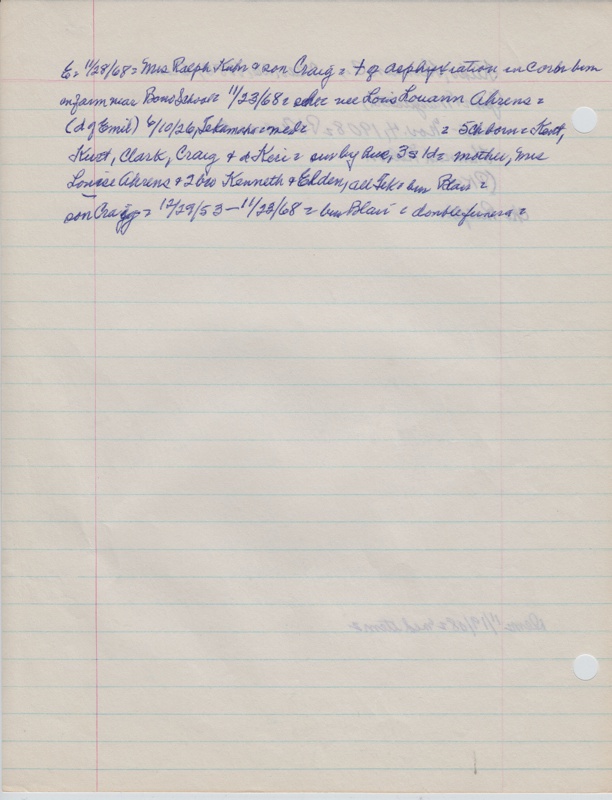 E. 11/28/68 = Mrs Ralph Kuhr & son Craig = of asphyxiation in corn bin
on farm near Bono School = 11/23/68 = she nee Lois Louann Ahrens =
(d of Emil) 6/10/26, Tekamah = med = = 5 ch born = Kent,
Kurt, Clark, Craig & d Keri = sur by hus, 3s 1d = mother, Mrs
Louise Ahrens & 2 bro Kenneth & Elden, all Tek = bur Blair =
son Craig = 12/29/53 - 11/23/68 = bur Blair = double funeral =